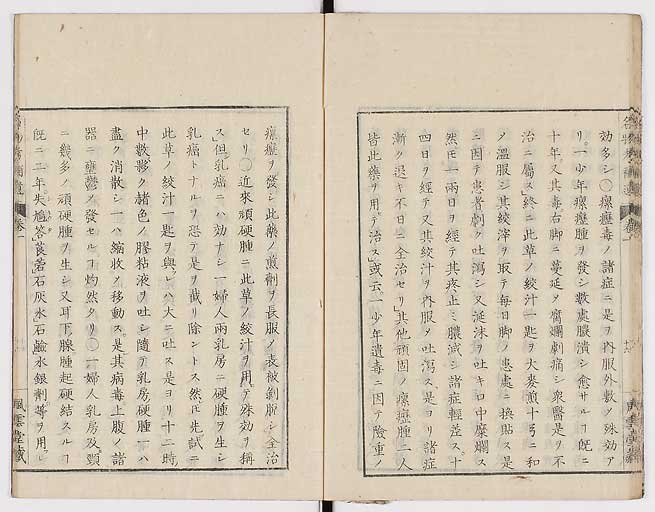 効多シ〇瘰癧毒ノ諸症ニ是ヲ内服外敷ノ殊効ア
リ、一少年瘰癧腫ヲ發シ数處膿潰シ愈サルヿ既ニ
十年、又其毒右脚ニ蔓延ノ腐爛劇痛シ衆醫是ヲ不
治ニ屬ス終ニ此草ノ絞汁一匙ヲ大麥煎十弓ニ和
ノ温服シ其絞滓ヲ取テ毎日脚ノ患處ニ換貼ス是
ニ因テ患者劇ク吐瀉シ又涎沫ヲ吐キ口中糜爛ス
然𪜈一兩日ヲ經テ其疼止ミ膿減シ諸症輕差ス十
四日ヲ經テ又其絞汁ヲ内服ノ吐瀉ス是ヨリ諸症
漸ク退キ不日ニ全治セリ其他頑固ノ瘰癧腫二人
皆此藥ヲ用テ治ス或云一少年遺毒ニ因テ險重ノ
瘰癧ヲ發シ此藥ノ煎劑ヲ長服ノ表被剝脱シ全治
セリ〇近來頑硬腫ニ此草ノ絞汁ヲ用テ殊効ヲ稱
ス但乳癌ニハ効ナシ一婦人兩乳房ニ硬腫ヲ生シ
乳癌トナルヲ恐テ是ヲ截リ除ントス然𪜈先試ニ
此草ノ絞汁一匙ヲ與シハ大ニ吐ス是ヨリ十二時
中數夥ク赭色ノ膠粘液ヲ吐シ隨テ乳房硬腫一ハ
盡ク消散シ一ハ縮收ノ移動ス是其病毒上腹ノ諸
器ニ壅鬱ノ發セルヿ灼然タリ〇一婦人乳房及頸
ニ幾多ノ頑硬腫ヲ生シ又耳下腺腫起硬結スルヿ
既ニ二年失鳩答莨菪石灰水石鹼水銀劑等ヲ用
卷一
風雲堂藏